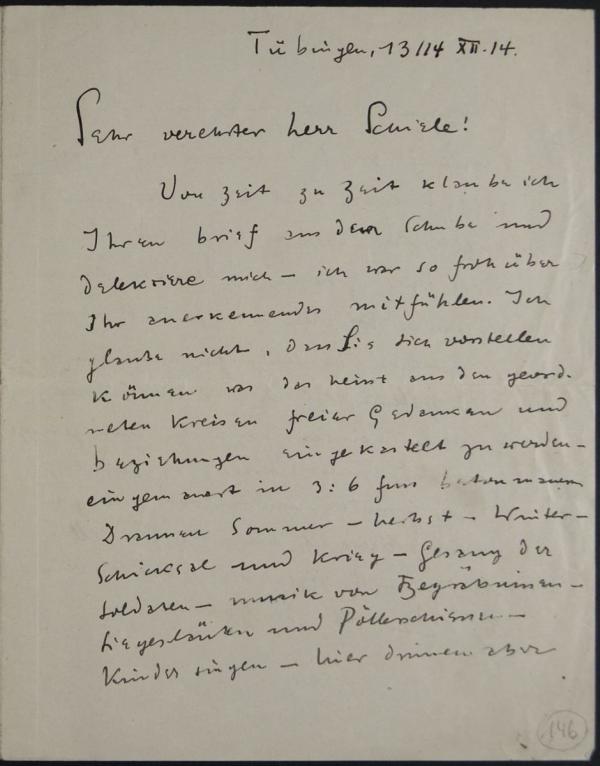 Tübingen, 13/14 XII. 14.
Sehr verehrter Herr Schiele!
Von Zeit zu Zeit klaube ich
Ihren Brief aus dem Schube und
delektiere mich – ich war so froh über
Ihr anerkennendes mitfühlen. Ich
glaube nicht, dass Sie sich vorstellen
können was das heisst aus den geord-
neten Kreisen freier Gedanken und
beziehungen eingekastelt zu werden –
eingemauert in 3:6 fuss betonmauern
Draussen Sommer – herbst – Winter –
Schicksal und Krieg – Gesang der
Soldaten – musik von Begräbnissen –
Siegesläuten und Pöllerschiessen –
Kinder singen – hier drinnen aber
146